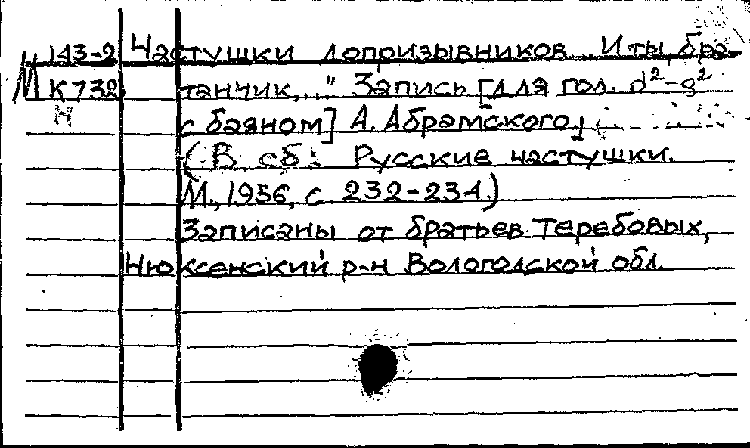 143-2 Частушки допризывников „И ты, бра-
М К 732 танчик,..." Запись [для гол. d²-g²
Н с баяном] А. Абрамского.
(В сб.: Русские частушки.
М., 1956, с 232-234.)
Записаны от братьев Теребовых,
Нюксенский р-н Вологодской обл.